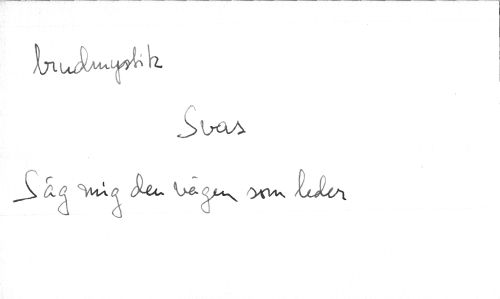 brudmystik
Svas
Säg mig den vägen som leder